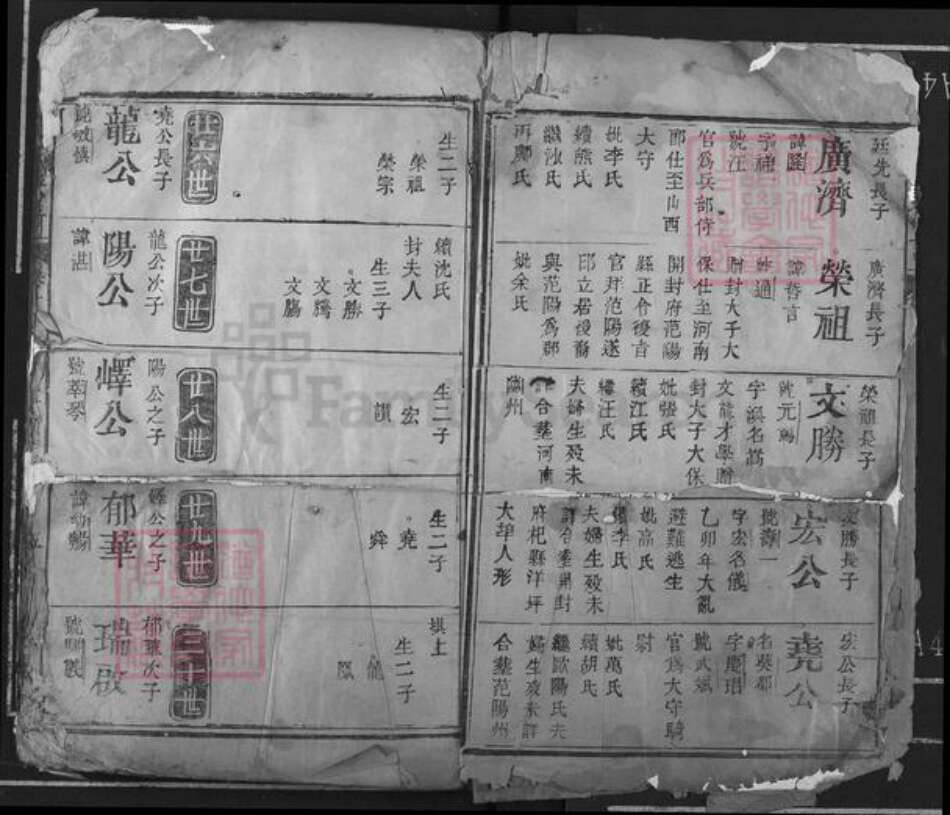 廷先長子
廣濟
官爲兵部侍
郎仕至山西
大守
妣李氏
續熊氏
繼沈氏
再鄺氏
廣濟長子
榮祖
諱哲言
號通
贈封大子大
保仕至河南
開封府范陽
縣正令後音
官拜范陽遂
卽立居後裔
與范陽爲郡
妣余氏
榮祖長子
文勝
號元勛
文能才學贈
封大子大保
妣張氏
續江氏
繼汪氏
夫婦生殁未
詳合葬河南
蘭州
文勝長子
宏公
號壽一
字宏名儀
乙卯年大亂
避難逃生
妣高氏
繼李氏
夫婦生殁未
詳合葬開封
府杞縣洋坪
大埠人形
宏公長子
堯公
號武斌
官爲大守騎
尉
妣萬氏
續胡氏
繼歐陽氏夫
婦生殁未詳
合葬范陽州
生二子
榮祖
榮宗
廿六世
堯公長子
龍公
續沈氏
封夫人
生三子
文勝
文騰
文腸
廿七世
龍公次子
陽公
諱湛
生二子
宏
讃
廿八世
陽公之子
嶧公
號翠琴
生二子
堯
舜
廿九世
嶧公之子
郁華
琪上
生二子
龍
鳳
三十世
郁華次子
瑞啟